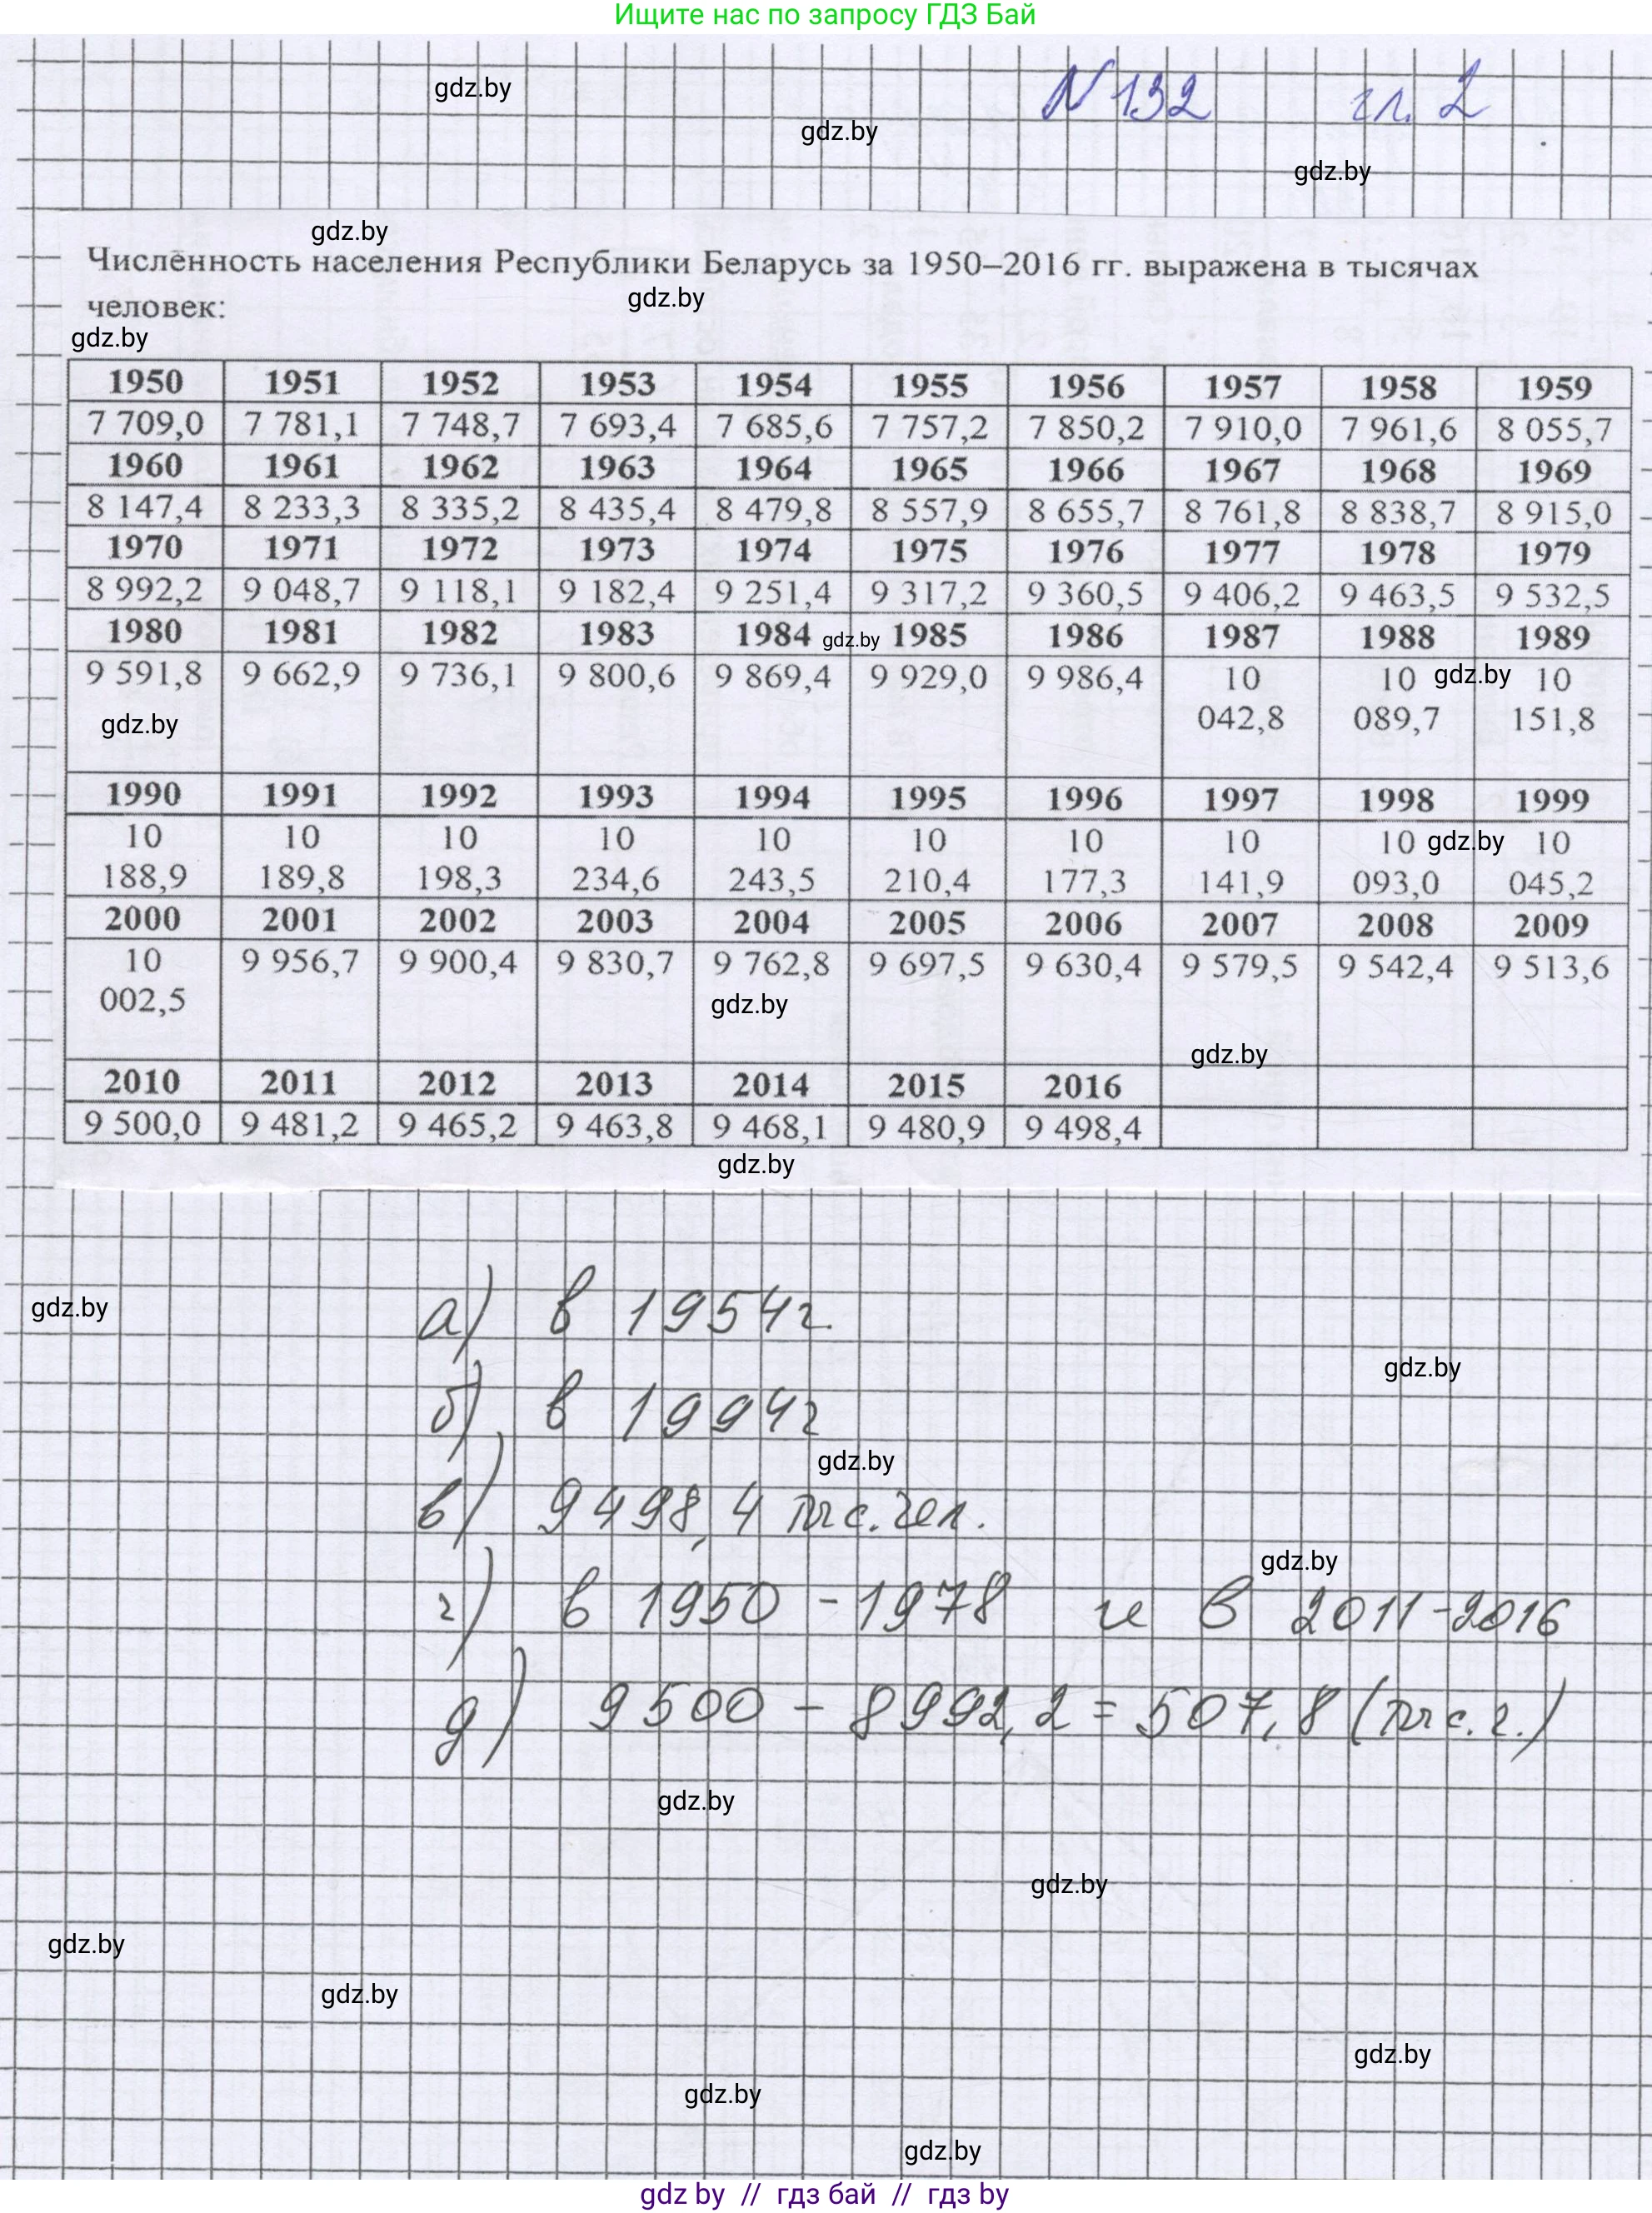 Ищите нас по запросу ГДЗ Бай
gdz.by
N 132 гл. 2
gdz.by
gdz.by
gdz.by
Численность населения Республики Беларусь за 1950–2016 гг. выражена в тысячах
gdz.by
человек:
gdz.by
1950 1951 1952 1953 1954 1955 1956 1957 1958 1959
7 709,0 7 781,1 7 748,7 7 693,4 7 685,6 7 757,2 7 850,2 7 910,0 7 961,6 8 055,7
1960 1961 1962 1963 1964 1965 1966 1967 1968 1969
8 147,4 8 233,3 8 335,2 8 435,4 8 479,8 8 557,9 8 655,7 8 761,8 8 838,7 8 915,0
1970 1971 1972 1973 1974 1975 1976 1977 1978 1979
8 992,2 9 048,7 9 118,1 9 182,4 9 251,4 9 317,2 9 360,5 9 406,2 9 463,5 9 532,5
1980 1981 1982 1983 1984 gdz.by 1985 1986 1987 1988 1989
9 591,8 9 662,9 9 736,1 9 800,6 9 869,4 9 929,0 9 986,4 10 10 gdz.by 10
042,8 089,7 151,8
gdz.by
1990 1991 1992 1993 1994 1995 1996 1997 1998 1999
10 10 10 10 10 10 10 10 10 gdz.by 10
188,9 189,8 198,3 234,6 243,5 210,4 177,3 141,9 093,0 045,2
2000 2001 2002 2003 2004 2005 2006 2007 2008 2009
10 9 956,7 9 900,4 9 830,7 9 762,8 9 697,5 9 630,4 9 579,5 9 542,4 9 513,6
002,5
gdz.by
gdz.by
2010 2011 2012 2013 2014 2015 2016
9 500,0 9 481,2 9 465,2 9 463,8 9 468,1 9 480,9 9 498,4
gdz.by
gdz.by
а) в 1954г.
gdz.by
б) в 1994г
gdz.by
в) 9498,4 тыс.чел.
gdz.by
г) в 1950 - 1978 и в 2011-2016
д) 9500 - 8992,2 = 507,8 (тыс.ч.)
gdz.by
gdz.by
gdz.by
gdz.by
gdz.by
gdz.by
gdz.by
gdz by // гдз бай // гдз by